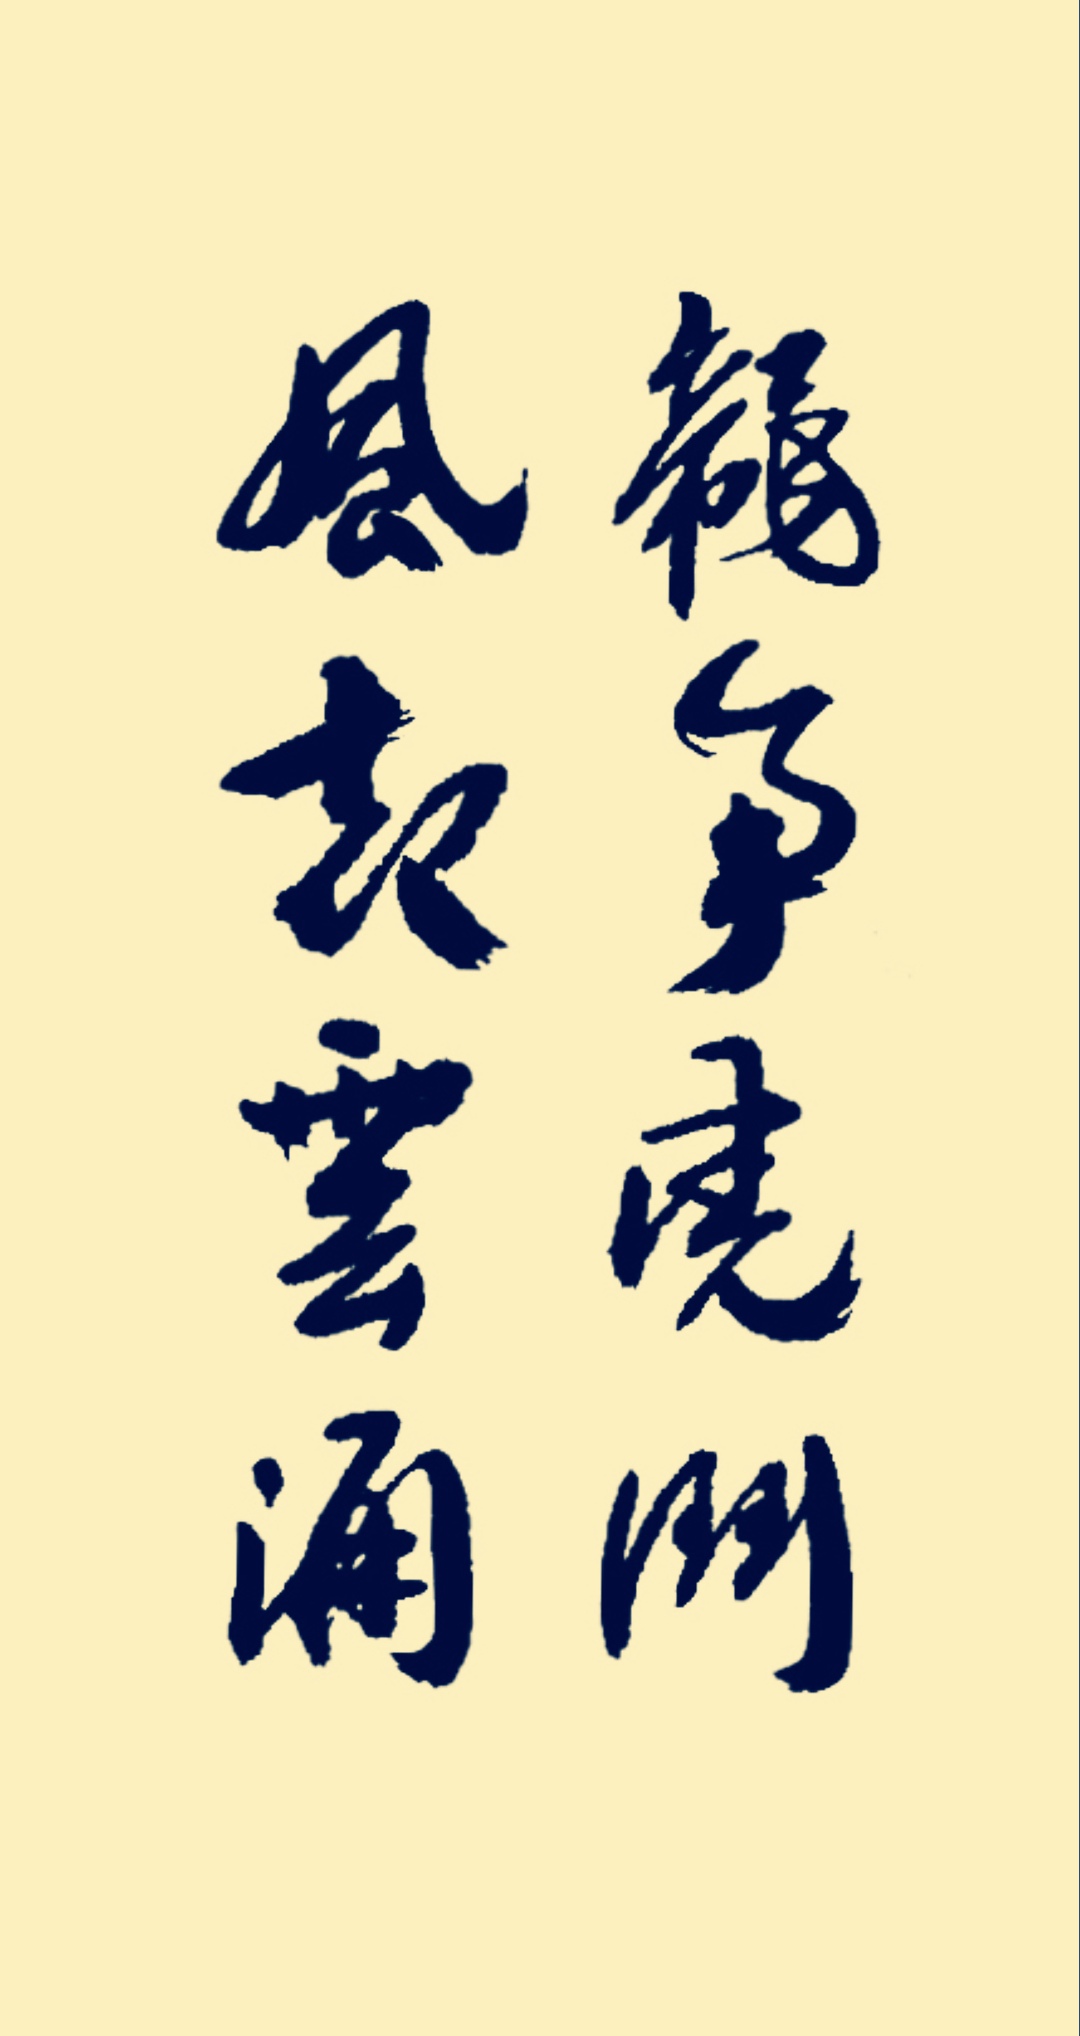 龍争虎鬥
風起雲涌